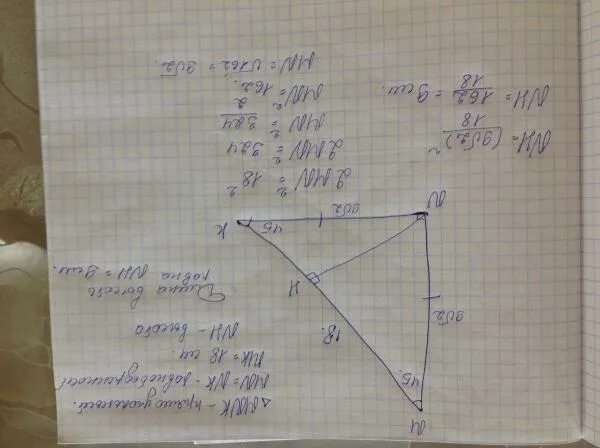 △MNK - прямоугольный.
MN = NK - равнобедренность
MK = 18 см.
NH - высота
Длина высоты
равна NH = 9 см.
M
45.
18.
9√2
H
K
45
9√2
N
2MN² = 18²
2MN² = 324
MN² = 324/2
MN² = 162.
MN = √162 = 9√2.
NH = (9√2)²/18
NH = 162/18 = 9 см.